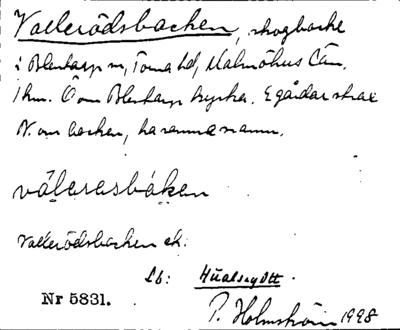 Vallerödsbacken, skogbacke
i Blentarp sn, Torna hd, Malmöhus län.
1 km. Ö om Blentarp kyrka. Egårdar strax
N. om backen, ha samma namn.
våleresbáken
Vallerödsbacken ek.
Lb:
Nr 5831.
P. Holmström 1928